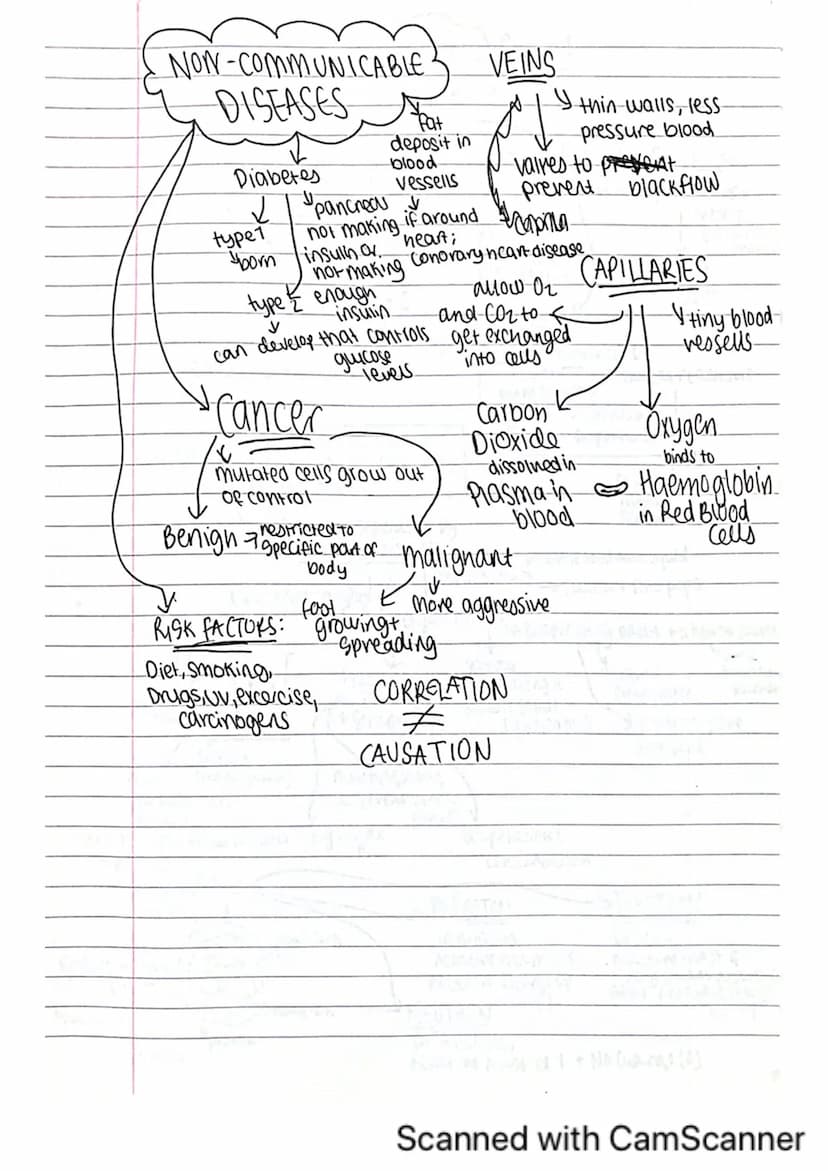 NON-COMMUNICABLE
DISEASES
Fat
deposit in
blood
vessells
if around
heart;
conorary heart disease
Diabetes
type 1
born
pancreas
not making
insulin or
not making
enough
insulin
that controls
glucose
levels
type 2
can develop
Cancer
mutated cells grow out
of control
Benign → restricted to
specific part of
body
malignant
more aggressive
growing +
spreading
RISK FACTORS:
Diet, smoking,
Drugs, UV, excorcise,
carcinogens
CORRELATION
≠
CAUSATION
VEINS
thin walls, less
pressure blood
valves to
prevent blackflow
CAPILLARIES
tiny blood
vessells
allow O2
and CO2 to
get exchanged
into cells
Carbon
Dioxide
dissolved in
Plasma in
blood
Oxygen
binds to
Haemoglobin
in Red Blood
Cells
Scanned with CamScanner